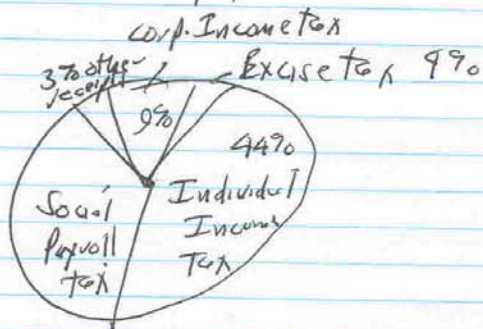 corp. Income tax
3% other receipts
Excise tax 9%
9%
44%
Individual
Income
Tax
Social
Payroll
tax